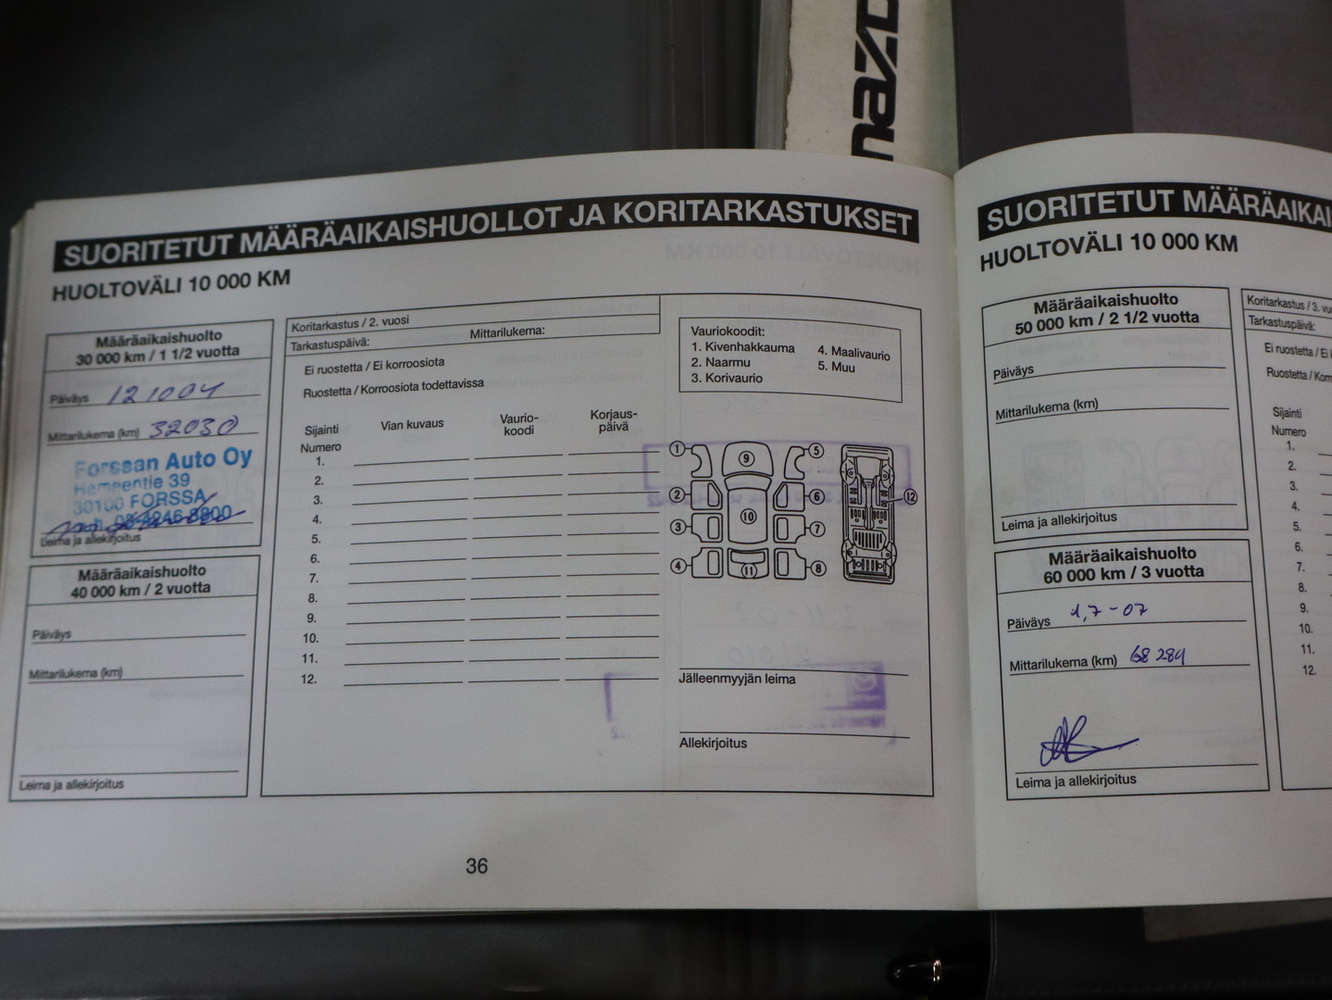 mazd
SUORITETUT MÄÄRÄAIKAISHUOLLOT JA KORITARKASTUKSET
HUOLTOVÄLI 10 000 KM
Määräaikaishuolto
30 000 km / 1 1/2 vuotta
Päiväys 121004
Mittarilukema (km) 32030
Forssan Auto Oy
Hämeentie 39
30100 FORSSA
Leima ja allekirjoitus
Määräaikaishuolto
40 000 km / 2 vuotta
Päiväys
Mittarilukema (km)
Leima ja allekirjoitus
Koritarkastus / 2. vuosi
Tarkastuspäivä: Mittarilukema:
Ei ruostetta / Ei korroosiota
Ruostetta / Korroosiota todettavissa
Sijainti Vian kuvaus Vaurio-koodi Korjaus-päivä
Numero
1.
2.
3.
4.
5.
6.
7.
8.
9.
10.
11.
12.
Vauriokoodit:
1. Kivenhakkauma 4. Maalivaurio
2. Naarmu 5. Muu
3. Korivaurio
1 9 5
2 10 6 12
3 7
4 11 8
Jälleenmyyjän leima
Allekirjoitus
36
SUORITETUT MÄÄRÄAIKAI
HUOLTOVÄLI 10 000 KM
Määräaikaishuolto
50 000 km / 2 1/2 vuotta
Päiväys
Mittarilukema (km)
Leima ja allekirjoitus
Määräaikaishuolto
60 000 km / 3 vuotta
Päiväys 1,7-07
Mittarilukema (km) 68 289
Leima ja allekirjoitus
Koritarkastus / 3. vu
Tarkastuspäivä:
Ei ruostetta / Ei k
Ruostetta / Kor
Sijainti
Numero
1.
2.
3.
4.
5.
6.
7.
8.
9.
10.
11.
12.